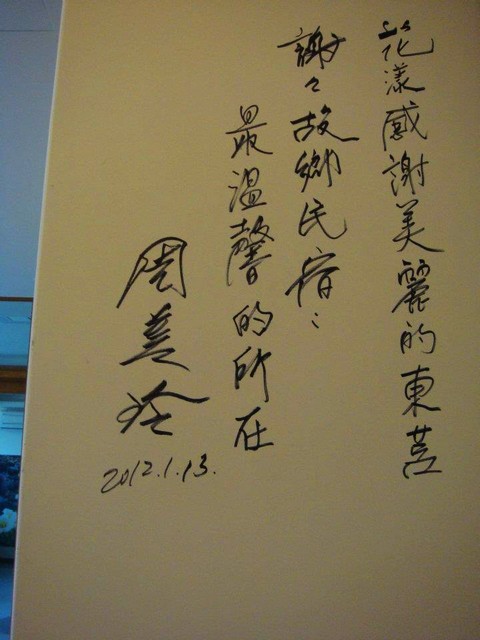 花漾感謝美麗的東莒
謝々故鄉民宿：
最溫馨的所在
周美玲
2012.1.13.